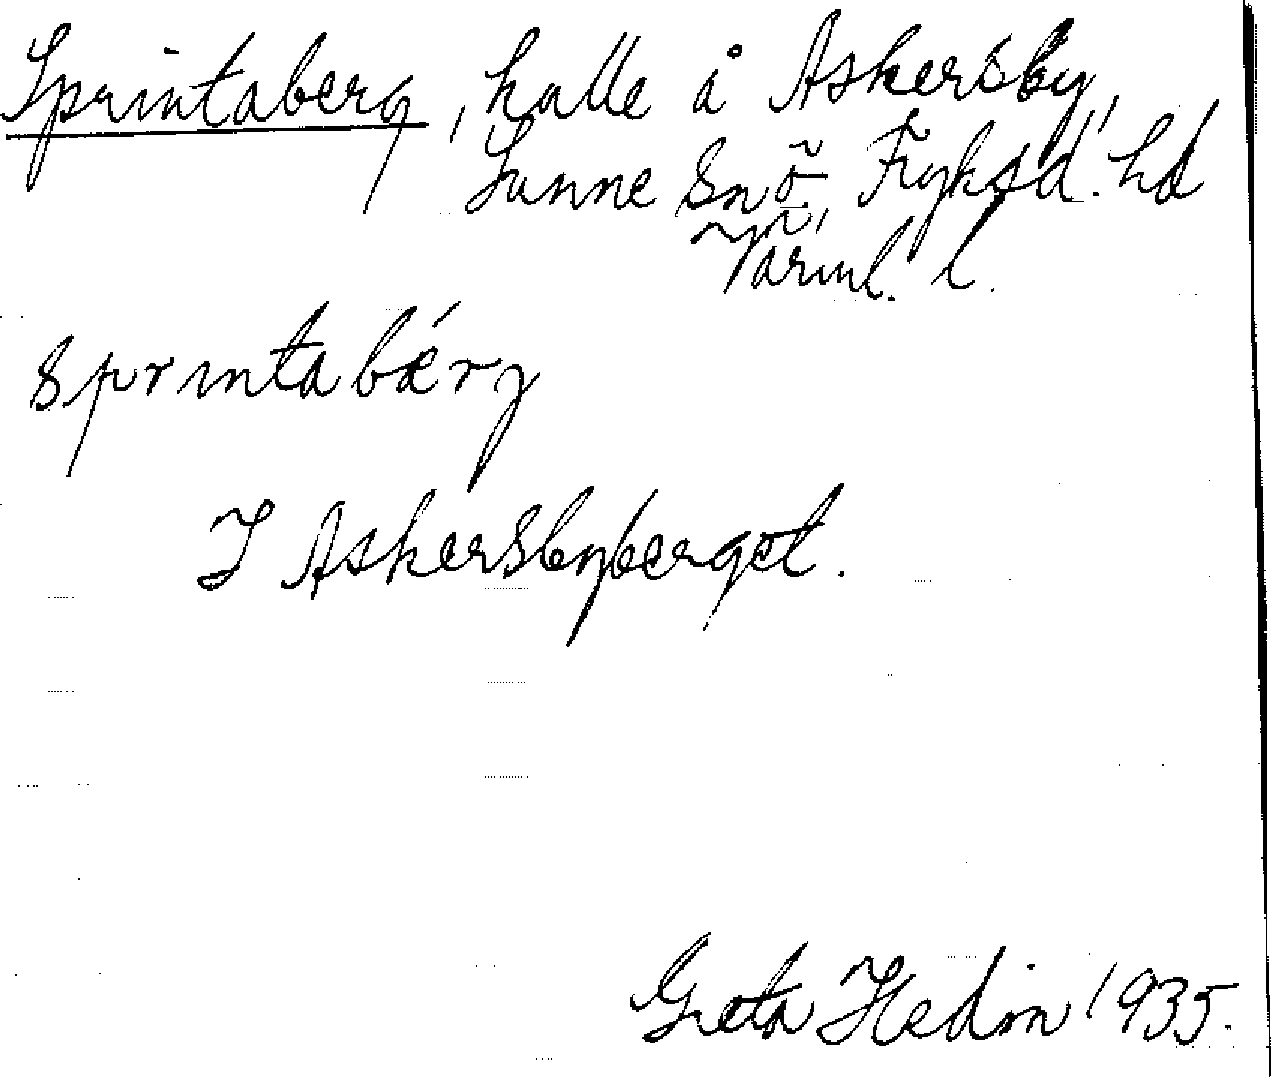 Sprintaberg, hälle å Askersby,
Sunne sn Ö. Fryksd. hd
Värml. l.
sprintabærg
I Askersbyberget.
Greta Hedin 1935.